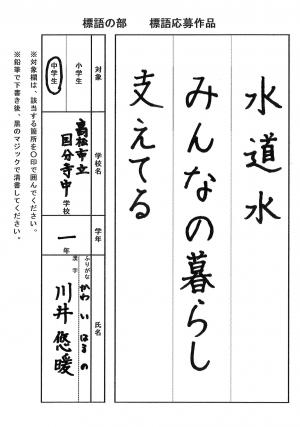 標語の部　標語応募作品
水道水
みんなの暮らし
支えてる
対象
小学生
中学生
学校名
高松市立
国分寺中学校
学年
一年
氏名
ふりがな
かわい はるの
漢字
川井 悠暖
※対象欄は、該当する箇所を〇印で囲んでください。
※鉛筆で下書き後、黒のマジックで清書してください。